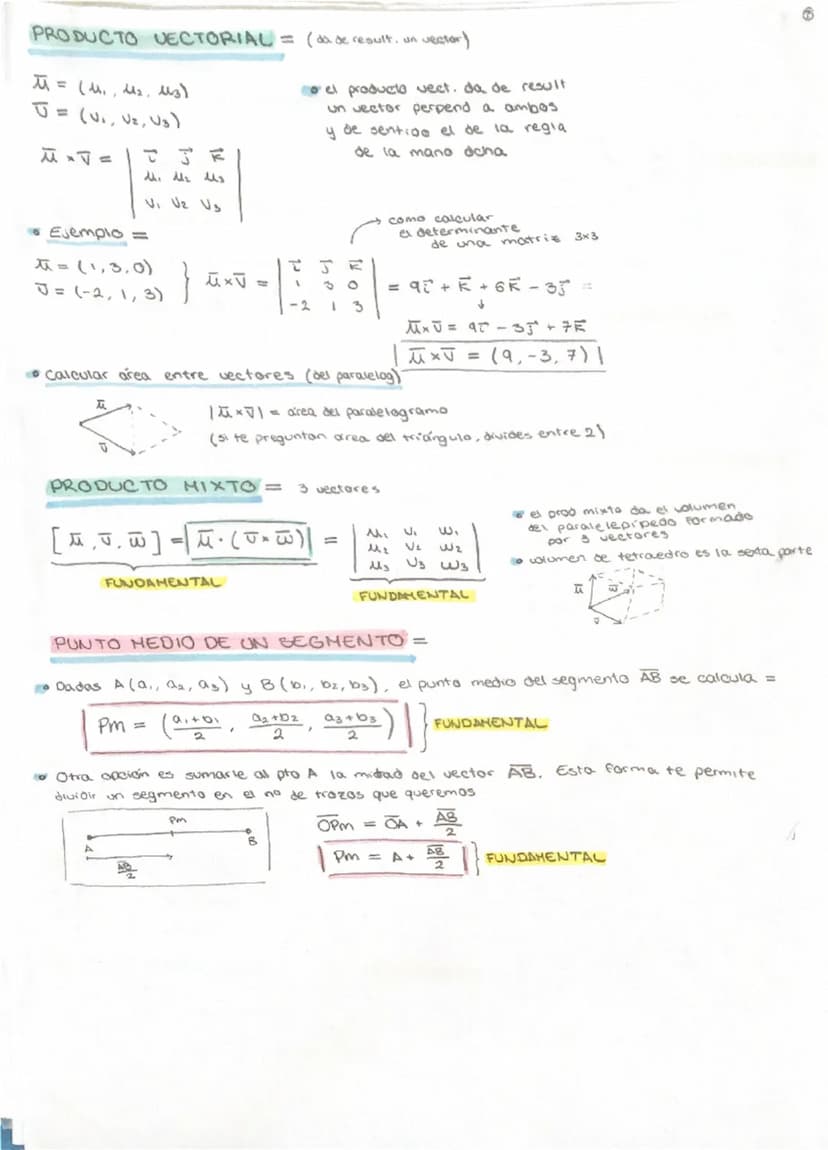 ②
PRODUCTO VECTORIAL = (da de result. un vector)
ū = (u₁, u₂, u₃)
v̄ = (v₁, v₂, v₃)
• el producto vect. da de result
un vector perpend a ambos
y de sentido el de la regla
de la mano dcha
ū × v̄ = | i⃗ j⃗ k⃗ |
u₁ u₂ u₃
v₁ v₂ v₃
• Ejemplo =
→ como calcular
el determinante
de una matriz 3x3
ū = (1, 3, 0)
v̄ = (-2, 1, 3)
} ū × v̄ = | i⃗ j⃗ k⃗ |
1 3 0
-2 1 3
= 9i⃗ + k⃗ + 6k⃗ - 3j⃗ =
↓
ū × v̄ = 9i⃗ - 3j⃗ + 7k⃗
| ū × v̄ = (9, -3, 7) |
• Calcular área entre vectores (del paralelog)
ū
v̄
|ū × v̄| = área del paralelogramo
(si te preguntan area del triángulo, divides entre 2)
PRODUCTO MIXTO = 3 vectores
[ū, v̄, w̄] = |ū · (v̄ × w̄)| = | u₁ v₁ w₁ |
u₂ v₂ w₂
u₃ v₃ w₃
FUNDAMENTAL
FUNDAMENTAL
• el prod mixto da el volumen
del paralelepípedo formado
por 3 vectores
• volumen de tetraedro es la sexta parte
ū
w̄
v̄
PUNTO MEDIO DE UN SEGMENTO =
• Dadas A(a₁, a₂, a₃) y B(b₁, b₂, b₃), el punto medio del segmento A̅B̅ se calcula =
Pm = (a₁+b₁/2, a₂+b₂/2, a₃+b₃/2) } FUNDAMENTAL
• Otra opción es sumarle al pto A la mitad del vector A̅B̅. Esta forma te permite
dividir un segmento en el nº de trozos que queremos
Pm
A
B
A̅B̅/2
O̅P̅m̅ = O̅A̅ + A̅B̅/2
| Pm = A + A̅B̅/2 | } FUNDAMENTAL